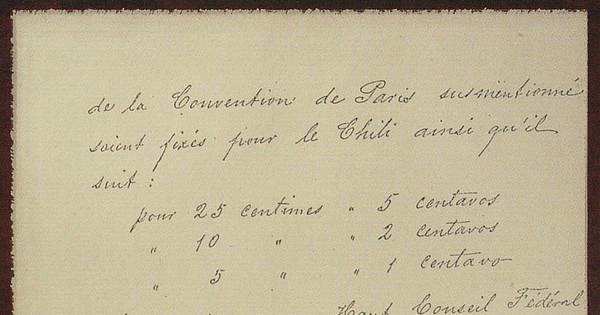 de la Convention de Paris susmentionné
soient fixés pour le Chili ainsi qu'il
suit :
pour 25 centimes " 5 centavos
" 10 " " 2 centavos
" 5 " " 1 centavo
Haut Conseil Fédéral